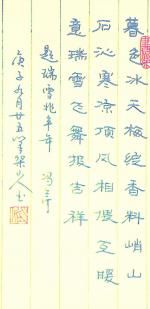 暮色冰天梅绽香料峭山
石沁寒凉顶风相偎互暖
意瑞雪飞舞报吉祥
题瑞雪兆丰年 冯
庚子九月廿五 山人书